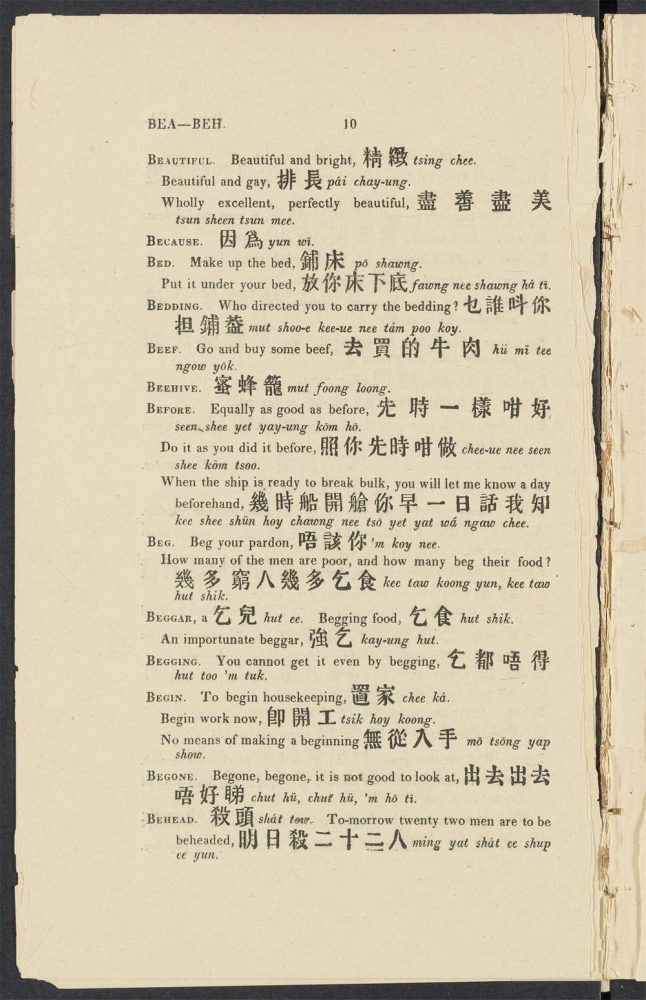 BEA—BEH. 10
BEAUTIFUL. Beautiful and bright, 精緻 tsing chee.
Beautiful and gay, 排長 pái chay-ung.
Wholly excellent, perfectly beautiful, 盡善盡美
tsun sheen tsun mee.
BECAUSE. 因爲 yun wī.
BED. Make up the bed, 鋪床 pō shawng.
Put it under your bed, 放你床下底 fawng nee shawng há ti.
BEDDING. Who directed you to carry the bedding? 乜誰呌你
担鋪葢 mut shoo-e kee-ue nee tám poo koy.
BEEF. Go and buy some beef, 去買的牛肉 hü mī tee
ngow yōk.
BEEHIVE. 蜜蜂籠 mut foong loong.
BEFORE. Equally as good as before, 先時一樣咁好
seen shee yet yay-ung kōm hō.
Do it as you did it before, 照你先時咁做 chee-ue nee seen
shee kōm tsoo.
When the ship is ready to break bulk, you will let me know a day
beforehand, 幾時船開艙你早一日話我知
kee shee shün hoy chawng nee tsō yet yat wá ngaw chee.
BEG. Beg your pardon, 唔該你 'm koy nee.
How many of the men are poor, and how many beg their food?
幾多窮人幾多乞食 kee taw koong yun, kee taw
hut shik.
BEGGAR, a 乞兒 hut ee. Begging food, 乞食 hut shik.
An importunate beggar, 強乞 kay-ung hut.
BEGGING. You cannot get it even by begging, 乞都唔得
hut too 'm tuk.
BEGIN. To begin housekeeping, 置家 chee ká.
Begin work now, 卽開工 tsik hoy koong.
No means of making a beginning 無從入手 mō tsōng yap
show.
BEGONE. Begone, begone, it is not good to look at, 出去出去
唔好睇 chut hü, chut hü, 'm hō ti.
BEHEAD. 殺頭 shát tow. To-morrow twenty two men are to be
beheaded, 明日殺二十二人 ming yat shát ee shup
ee yun.